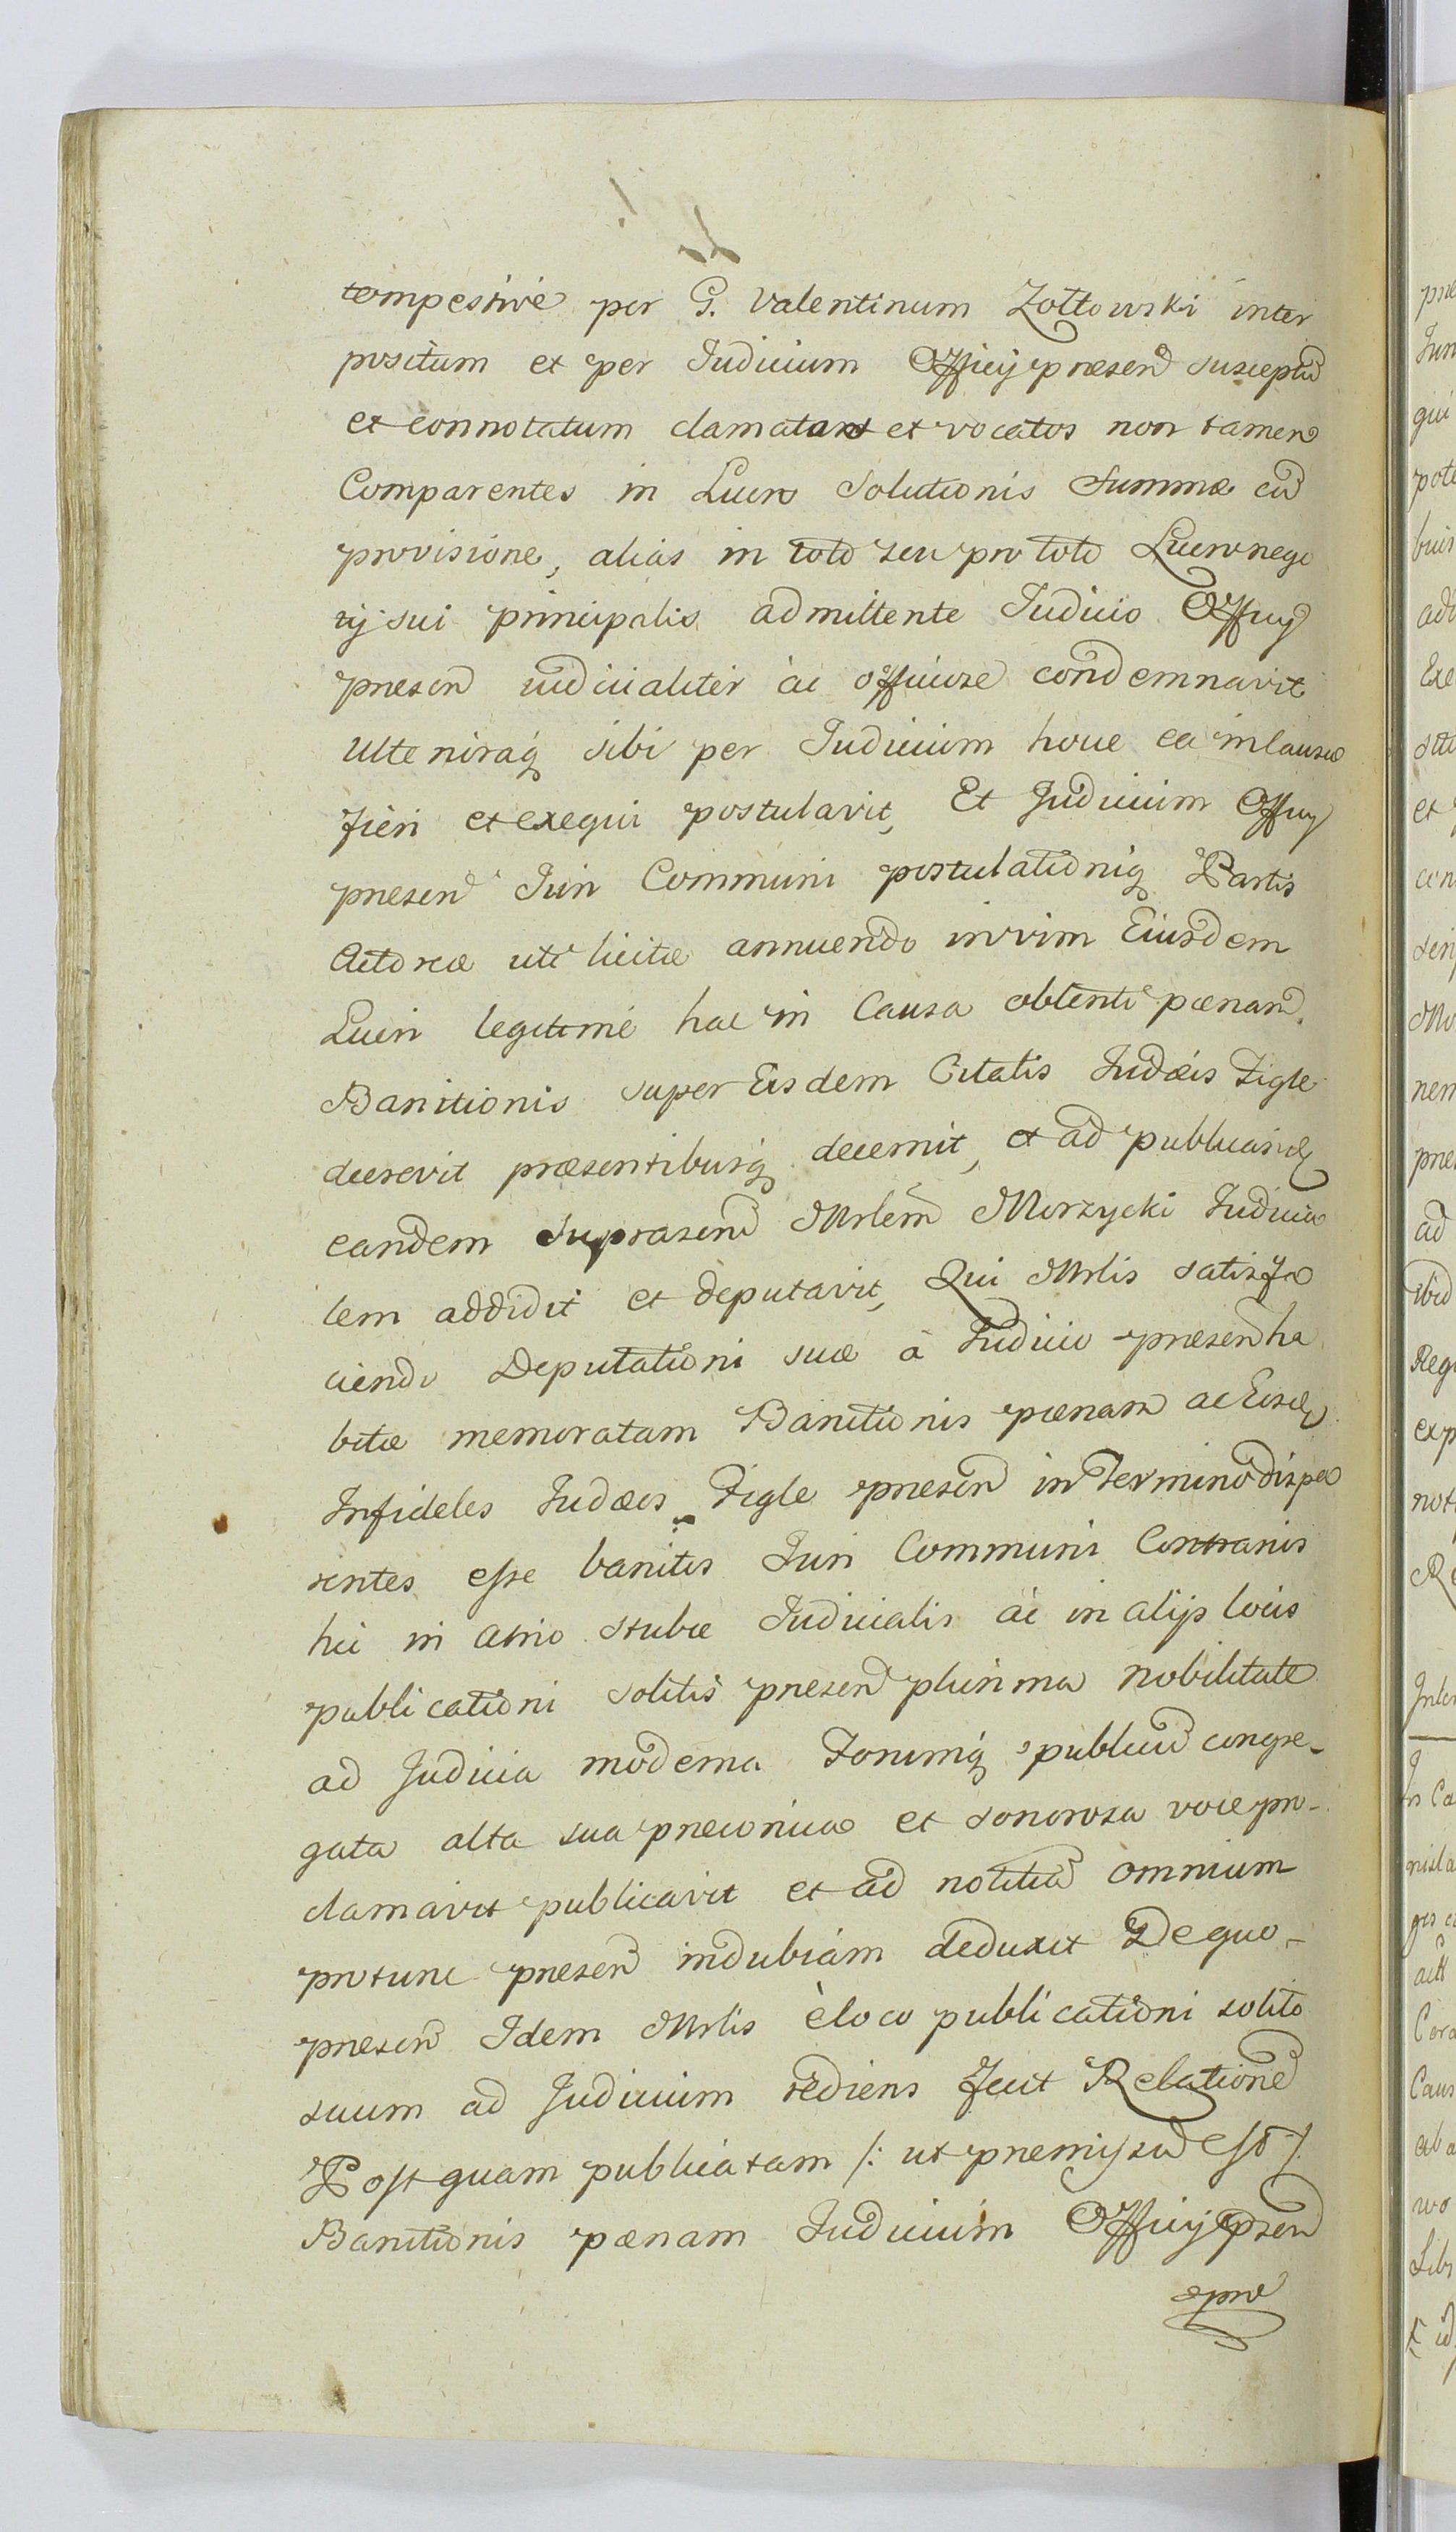 tempestive per G. Valentinum Zołtowski inter
positum et per Judicium Officij præsen susceptu
et connotatum clamatans et vocatos non tamen
Comparentes in Lucro Solutionis Summæ cu
provisione, alias in toto seu pro toto Lucro nego
cij sui principalis admittente Judicio Officij
præsen judicialiter ac officiose condemnavit
Ulterioraq sibi per Judicium hocce ea in causa
fieri et exequi postulavit, Et Judicium Officij
præsen Juri Communi postulationiq Partis
Actoreæ uti licitæ annuendo in vim Eiusdem
Lucri legitime hac in Causa obtenti pænam
Banitionis super Eisdem Citatis Judæis Figle
decrevit præsentibusq decernit, et ad publicand
eandem suprascri Mrlem Morzycki Judicia
lem addidit et deputavit, Qui Mrlis satisfa
ciendo Deputationi suæ a Judicio præsen ha
bitæ memoratam Banitionis pænam ac Eosd
Infideles Judæos Figle præsen in Termino dispa
rentes esse banitos Juri Communi Contrarios
hic in atrio stubæ Judicialis ac in alijs locis
publicationi solitis præsen plurima nobilitate
ad Judicia moderna Forumq publicu congre-
gata alta sua præconica et sonorosa voce pro-
clamavit publicavit et ad notitia omnium
protunc præsen indubiam deduxit De quo-
præsen Idem Mrlis e loco publicationi solito
suum ad Judicium rediens fecit Relatione
Post quam publicatam /: ut præmissu est :/
Banitionis pænam Judicium Officij præsen